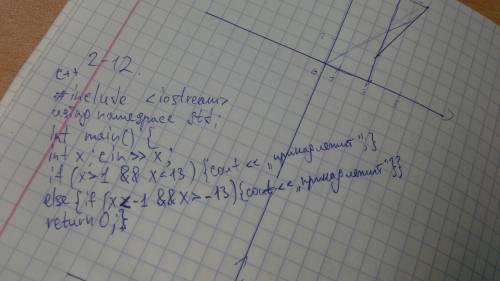 2-12.
c++
#include <iostream>
using namespace std;
int main() {
int x; cin >> x;
if (x>1 && x<13) {cout << „принадлежит";}
else {if (x<-1 && x>-13) {cout << „принадлежит"}}
return 0;}